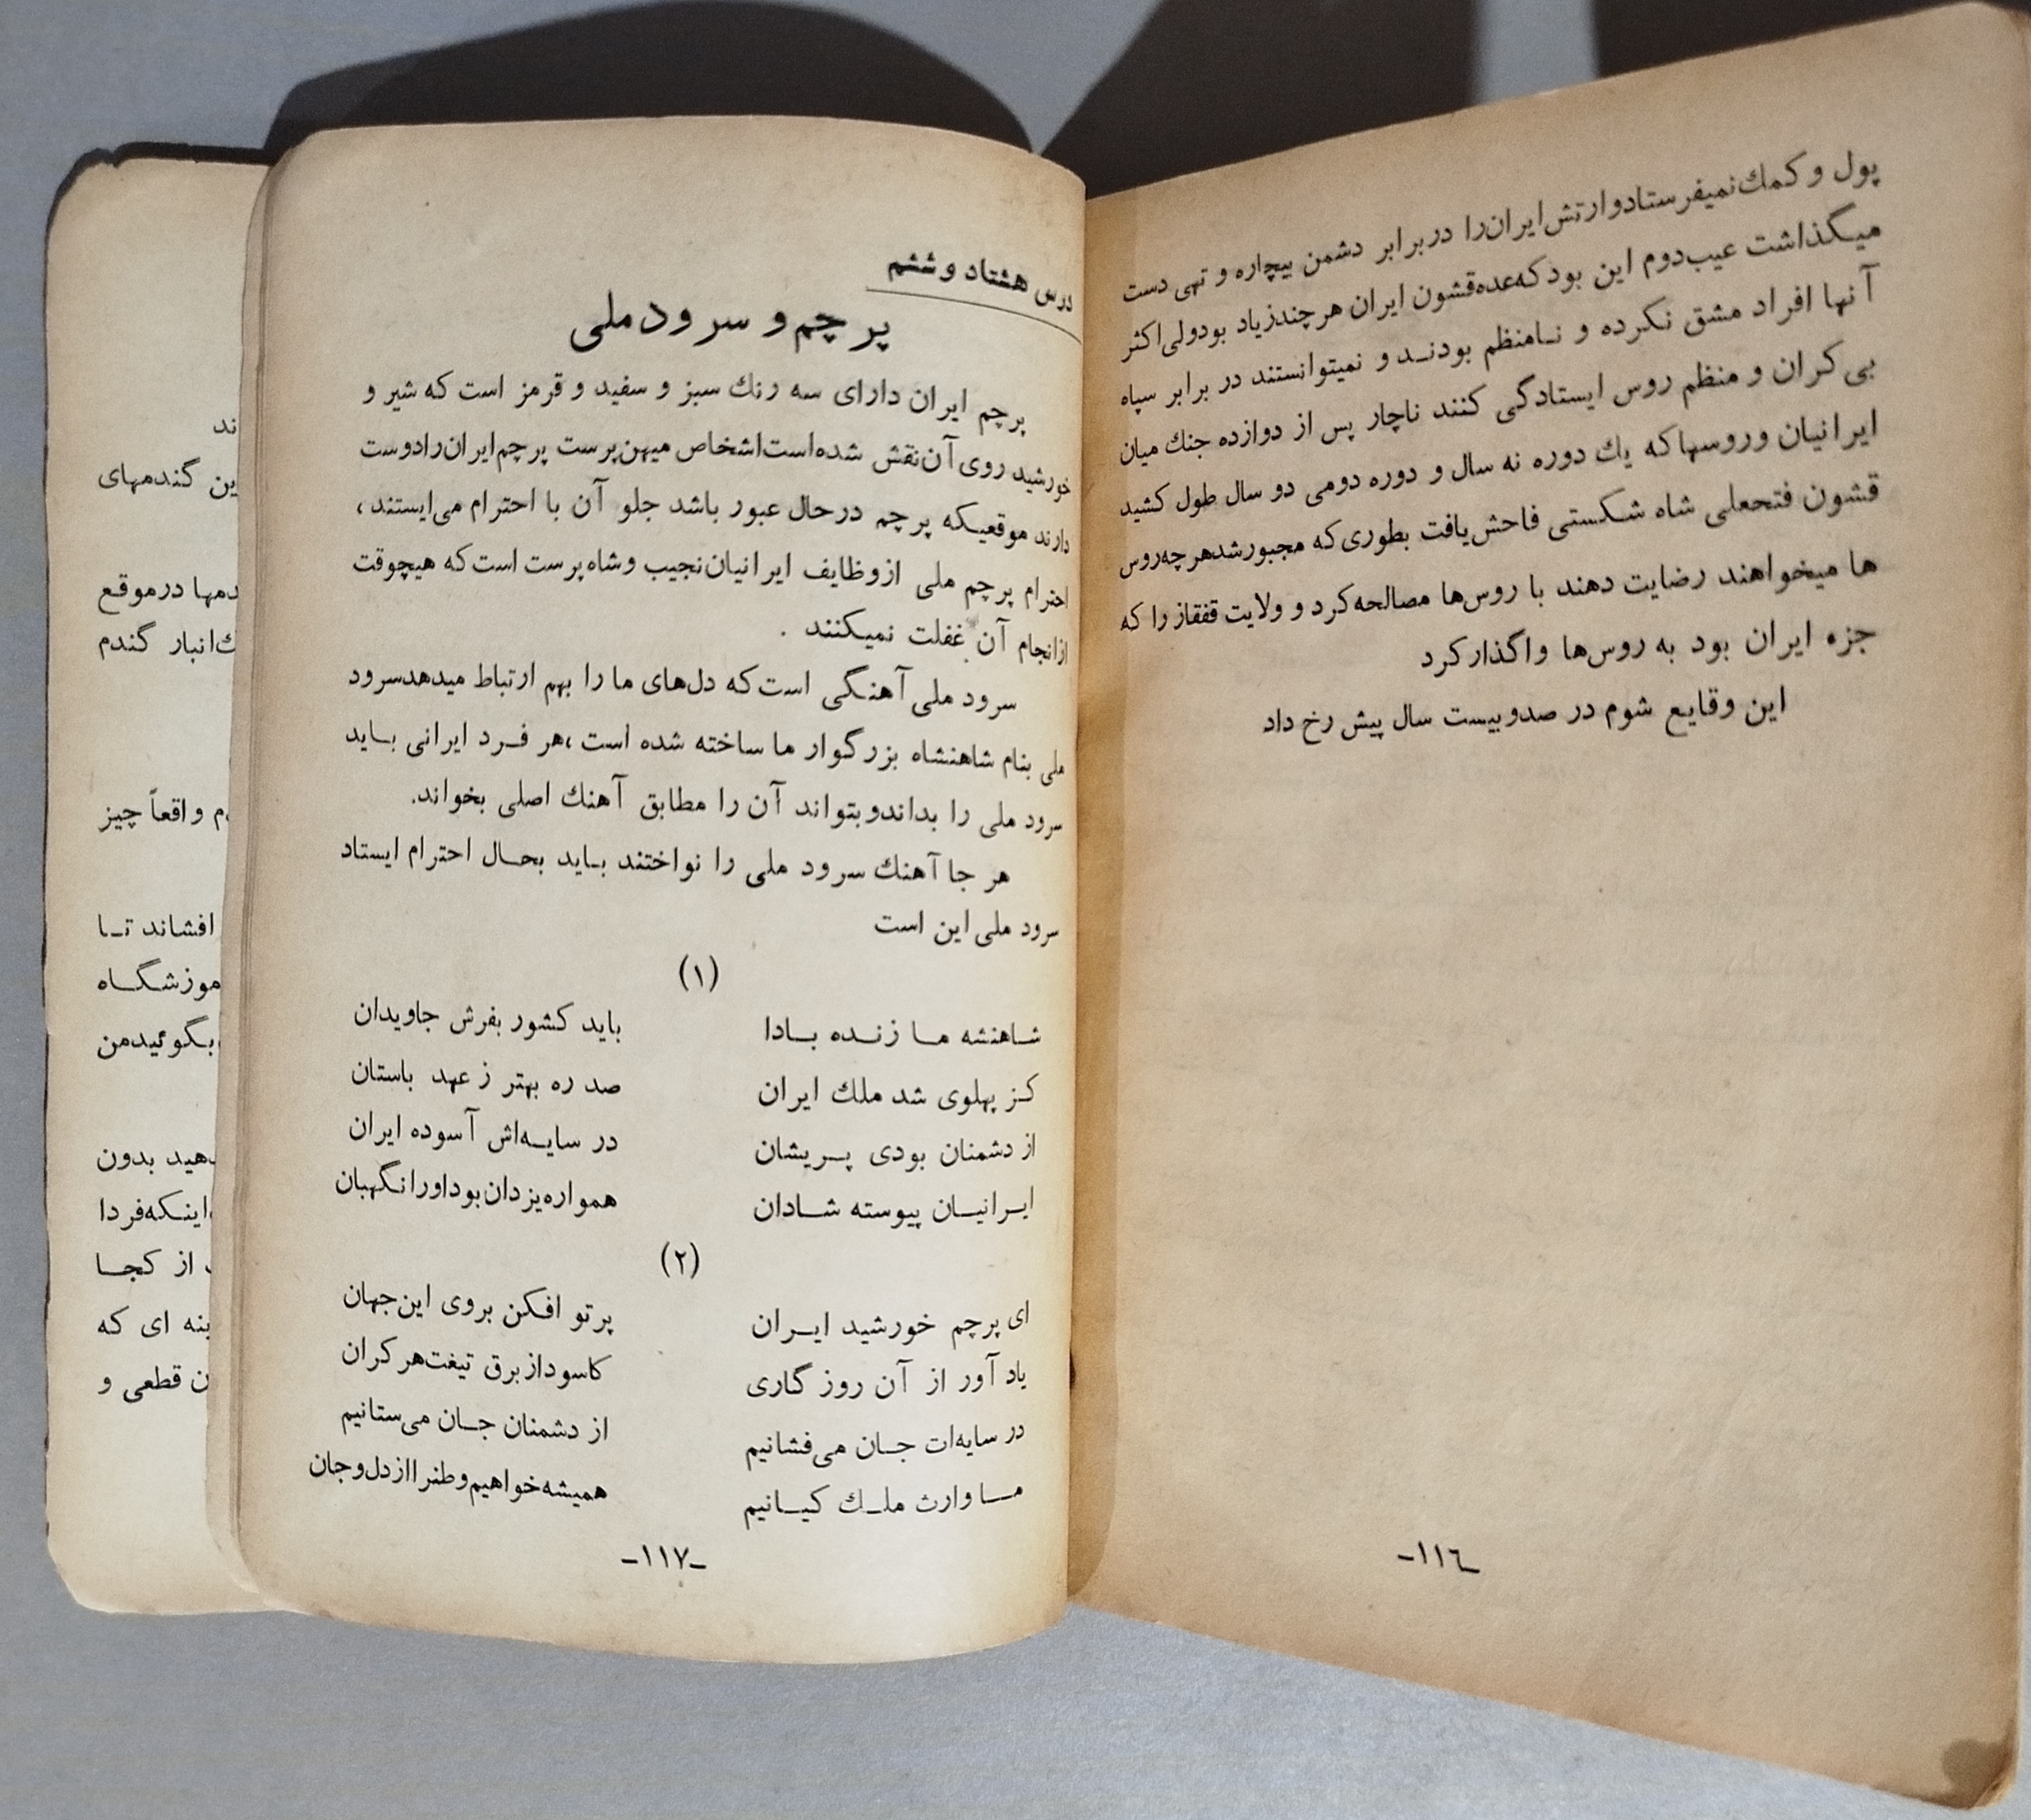 پول و کمك نمیفرستاد و ارتش ایران را در برابر دشمن بیچاره و تهی دست
میگذاشت عیب دوم این بود که عده قشون ایران هر چند زیاد بود ولی اکثر
آنها افراد مشق نکرده و نامنظم بودند و نمیتوانستند در برابر سپاه
بی کران و منظم روس ایستادگی کنند ناچار پس از دوازده جنك میان
ایرانیان و روسها که یك دوره نه سال و دوره دومی دو سال طول کشید
قشون فتحعلی شاه شکستی فاحش یافت بطوری که مجبور شد هر چه روس
ها میخواهند رضایت دهند با روس‌ها مصالحه کرد و ولایت قفقاز را که
جزء ایران بود به روس‌ها واگذار کرد
این وقایع شوم در صد و بیست سال پیش رخ داد
-۱۱٦-
درس هشتاد و ششم
پرچم و سرود ملی
پرچم ایران دارای سه رنك سبز و سفید و قرمز است که شیر و
خورشید روی آن نقش شده است اشخاص میهن پرست پرچم ایران را دوست
دارند موقعیکه پرچم در حال عبور باشد جلو آن با احترام می‌ایستند،
احترام پرچم ملی از وظایف ایرانیان نجیب و شاه پرست است که هیچوقت
از انجام آن غفلت نمیکنند .
سرود ملی آهنگی است که دل‌های ما را بهم ارتباط میدهد سرود
ملی بنام شاهنشاه بزرگوار ما ساخته شده است، هر فرد ایرانی باید
سرود ملی را بداند و بتواند آن را مطابق آهنك اصلی بخواند.
هر جا آهنك سرود ملی را نواختند باید بحال احترام ایستاد
سرود ملی این است
(۱)
شاهنشه ما زنده بادا باید کشور بفرش جاویدان
کز پهلوی شد ملك ایران صد ره بهتر ز عهد باستان
از دشمنان بودی پریشان در سایه‌اش آسوده ایران
ایرانیان پیوسته شادان همواره یزدان بود او را نگهبان
(۲)
ای پرچم خورشید ایران پرتو افکن بروی این جهان
یاد آور از آن روز گاری کاسود از برق تیغت هر کران
در سایه‌ات جان می‌فشانیم از دشمنان جان می‌ستانیم
ما وارث ملك کیانیم همیشه خواهیم وطنرا از دل و جان
-۱۱۷-
ین گندمهای
در موقع
انبار گندم
واقعاً چیز
افشاند تا
بگوئید من
بدون
اینکه فردا
از کجا
ای که
قطعی و